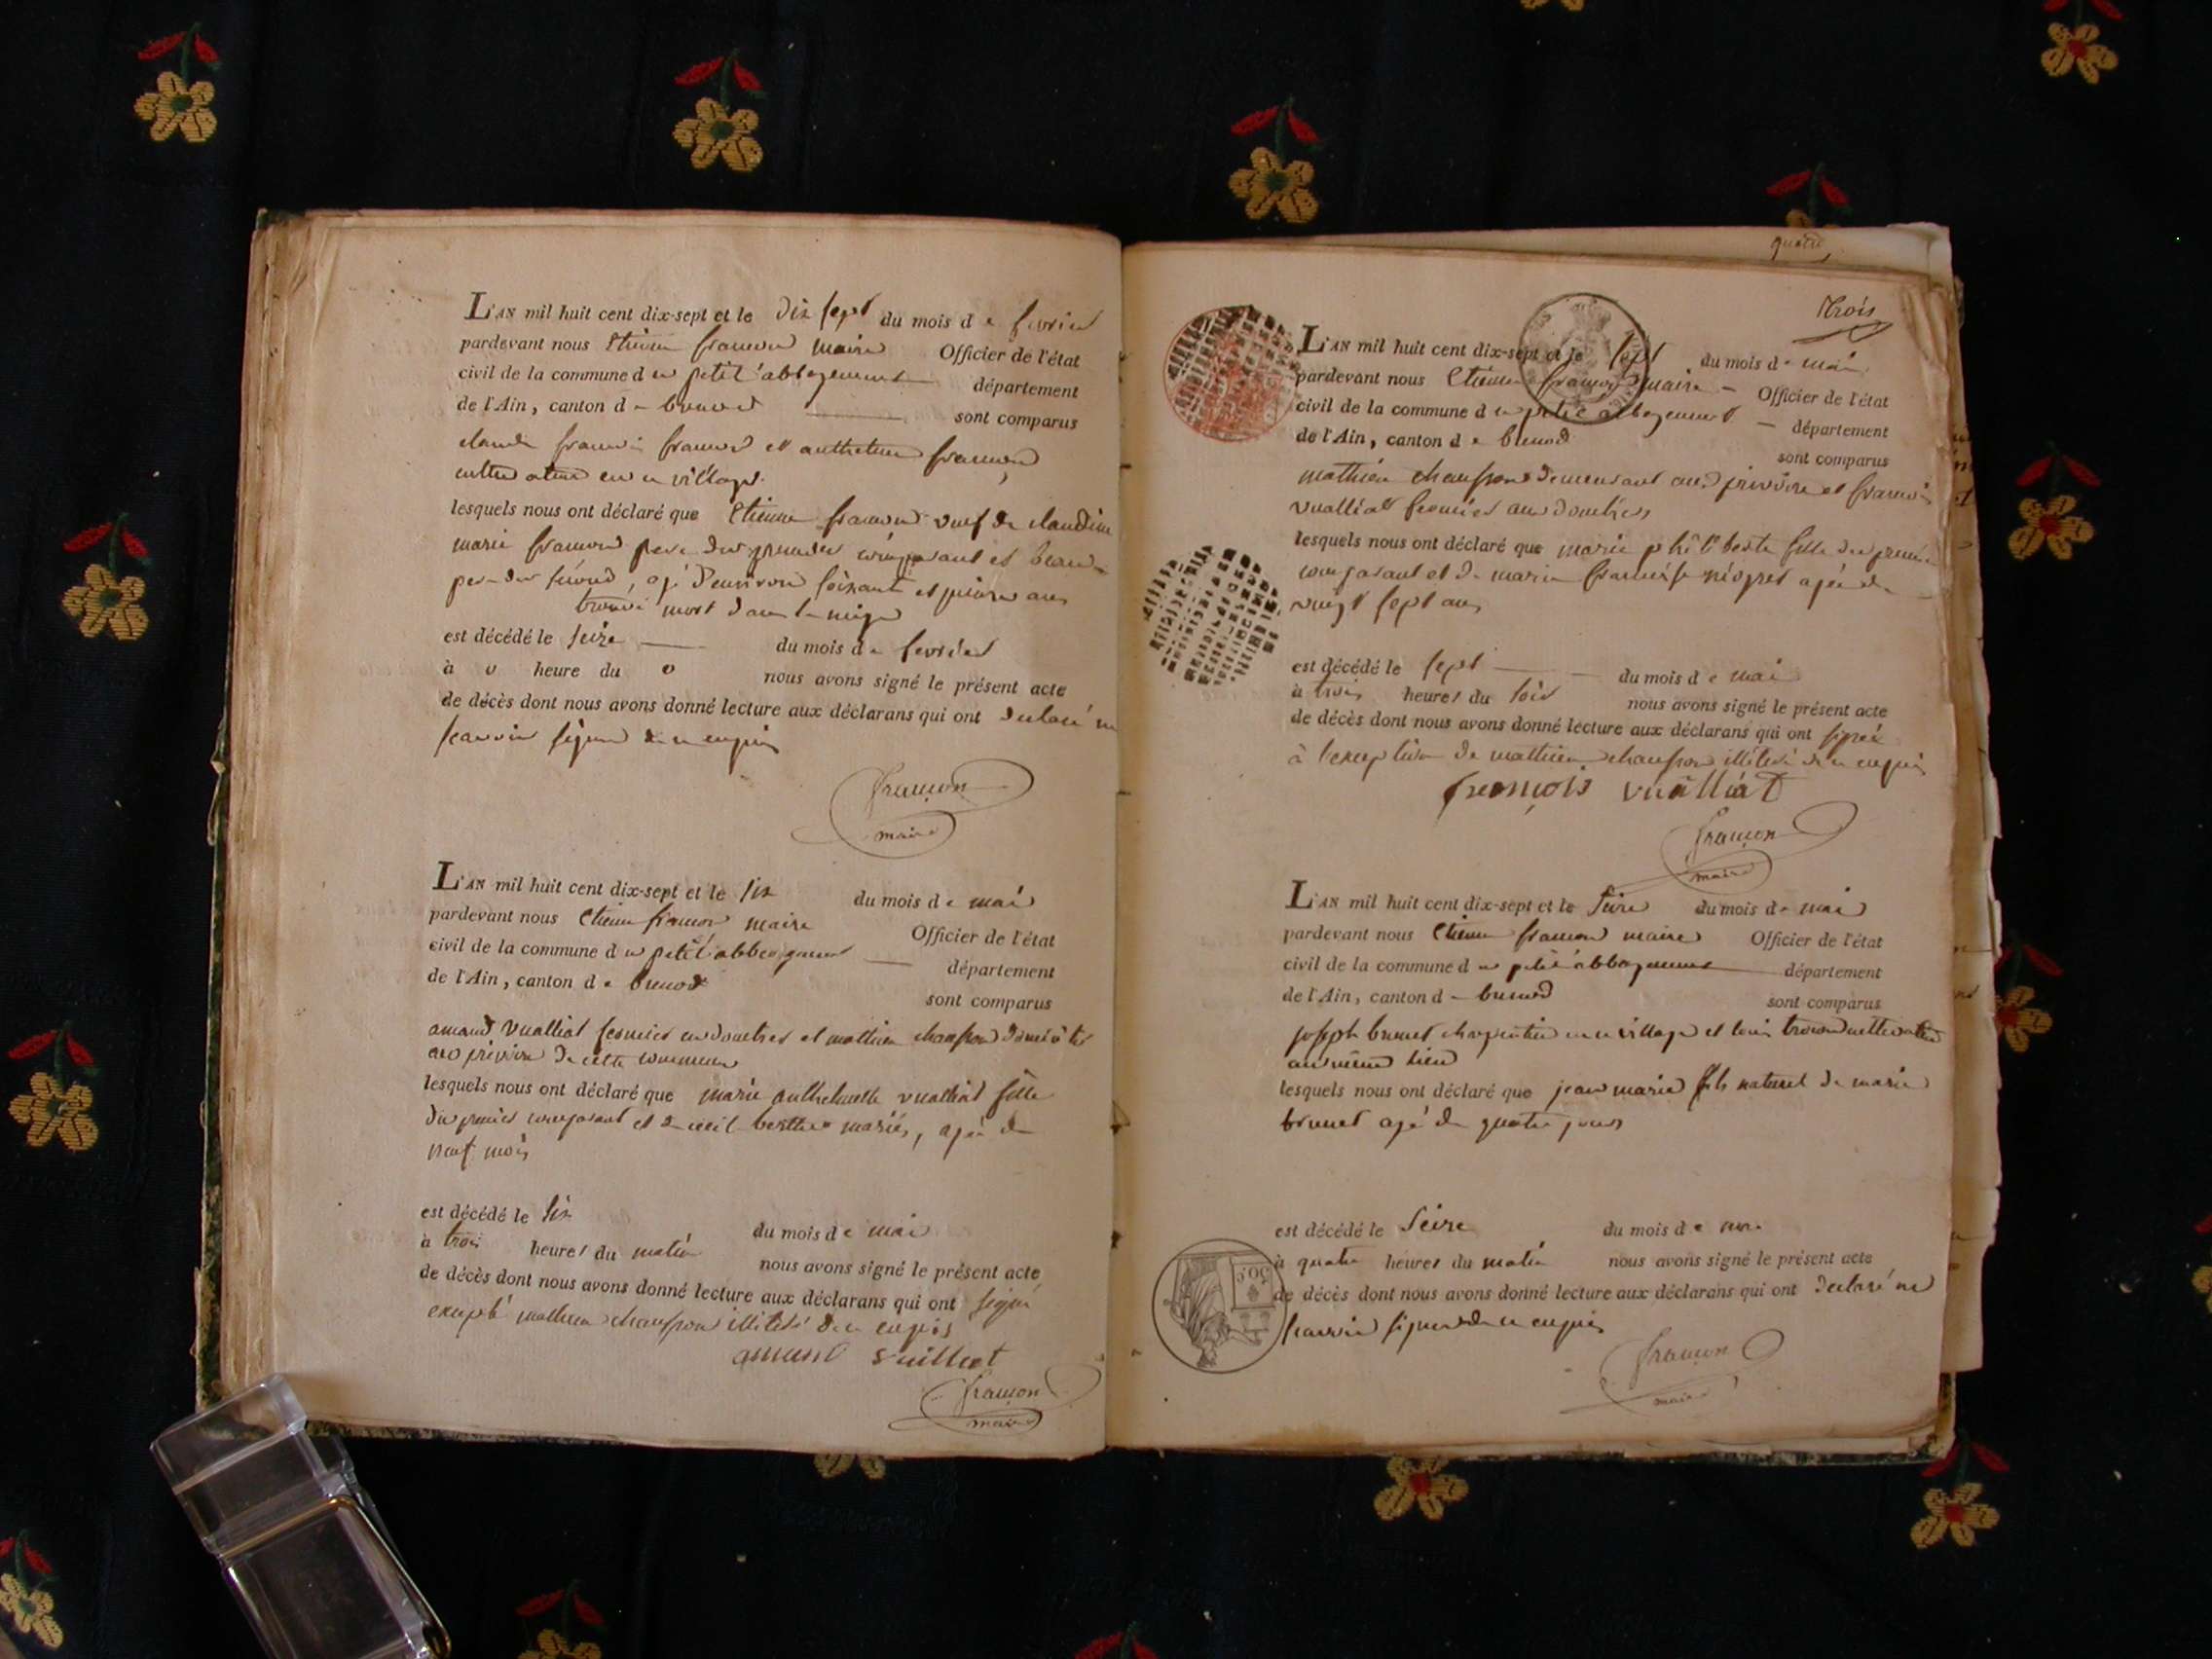 L'AN mil huit cent dix-sept et le dix sept du mois de fevrier
pardevant nous Etienne françon maire Officier de l'état
civil de la commune du petit abbergement département
de l'Ain, canton de brenod sont comparus
claude françois françon et anthelme françon
cultivateurs en ce village
lesquels nous ont déclaré que Etienne françon veuf de claudine
marie françon pere du premier comparant et beau
pere du second, agé d'environ soixante et quinze ans
trouvé mort dans la neige
est décédé le seize du mois de fevrier
à o heure du o nous avons signé le présent acte
de décès dont nous avons donné lecture aux déclarans qui ont declaré ne
scavoir signer de ce enquis
françon
maire
L'AN mil huit cent dix-sept et le six du mois de mai
pardevant nous Etienne françon maire Officier de l'état
civil de la commune du petit abbergement département
de l'Ain, canton de brenod
sont comparus
amand vualliat fermier en douttres et mathieu chanfron
de cette commune
lesquels nous ont déclaré que marie anthelmette vualliat fille
du premier comparant et de berthet mariés, agée de
neuf mois
est décédé le six du mois de mai
à trois heures du matin nous avons signé le présent acte
de décès dont nous avons donné lecture aux déclarans qui ont signé
excepté mathieu chanfron illitéré de ce enquis
amand vuilliat
françon
maire
quatre
trois
L'AN mil huit cent dix-sept et le sept du mois de mai
pardevant nous Etienne françon maire Officier de l'état
civil de la commune du petit abbergement département
de l'Ain, canton de brenod
sont comparus
mathieu chanfron demeurant et françois
vualliat fermier
lesquels nous ont déclaré que marie fille du premier
comparant et de marie françoise agée de
vingt sept ans
est décédé le sept du mois de mai
à trois heures du soir nous avons signé le présent acte
de décès dont nous avons donné lecture aux déclarans qui ont signé
à l'exception de mathieu chanfron illitéré de ce enquis
françois vualliat
françon
maire
L'AN mil huit cent dix-sept et le seize du mois de mai
pardevant nous Etienne françon maire Officier de l'état
civil de la commune du petit abbergement département
de l'Ain, canton de brenod
sont comparus
joseph brunet charpentier en ce village et cultivateur
au même lieu
lesquels nous ont déclaré que jean marie fils naturel de marie
brunet agé de quatre jours
est décédé le seize du mois de mai
à quatre heures du matin nous avons signé le présent acte
de décès dont nous avons donné lecture aux déclarans qui ont declaré ne
scavoir signer de ce enquis
françon
maire